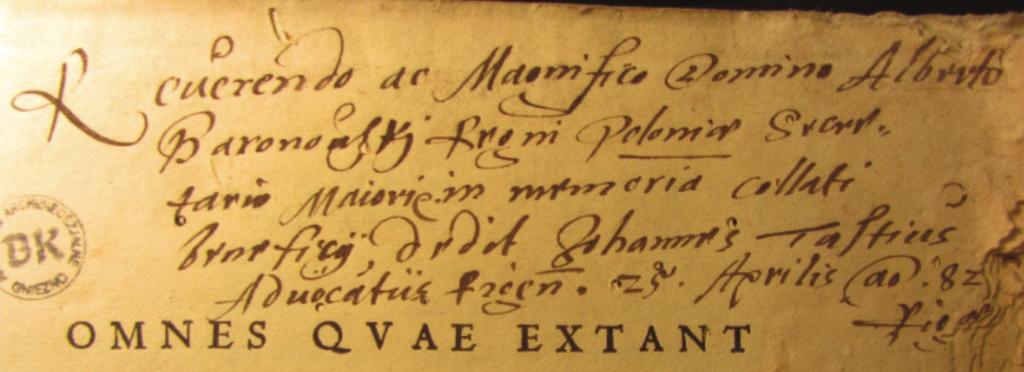 Reuerendo ac Magnifico Domino Alberto
Baronouskj Regni Poloniæ Secre-
tario Maiori in memoria collati
beneficij, dedit Johannes Tastius
Aduocatus Rigen. 25. Aprilis ao. 82
Rigæ
ARCHIDIECEZJALNE
BK
GNIEZNO
OMNES QVAE EXTANT